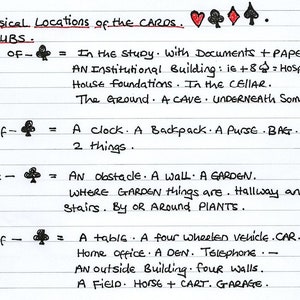 sical Locations of the CARDS. ♥ ♣ ♦ ♠.
UBS.
of - ♣ = In the study. With Documents + Pape
An Institutional Building: ie + 8 ♤ = Hosp
House foundations. In the Cellar.
The Ground. A Cave. Underneath Som
f - ♣ = A clock. A Backpack. A Purse. Bag.
2 things.
- ♣ = An obstacle. A wall. A Garden.
Where Garden things are. Hallway an
Stairs. By or Around Plants.
f - ♣ = A table. A four wheeled vehicle. Car.
Home office. A Den. Telephone. —
An outside Building. four walls.
A Field. Horse + Cart. Garage.